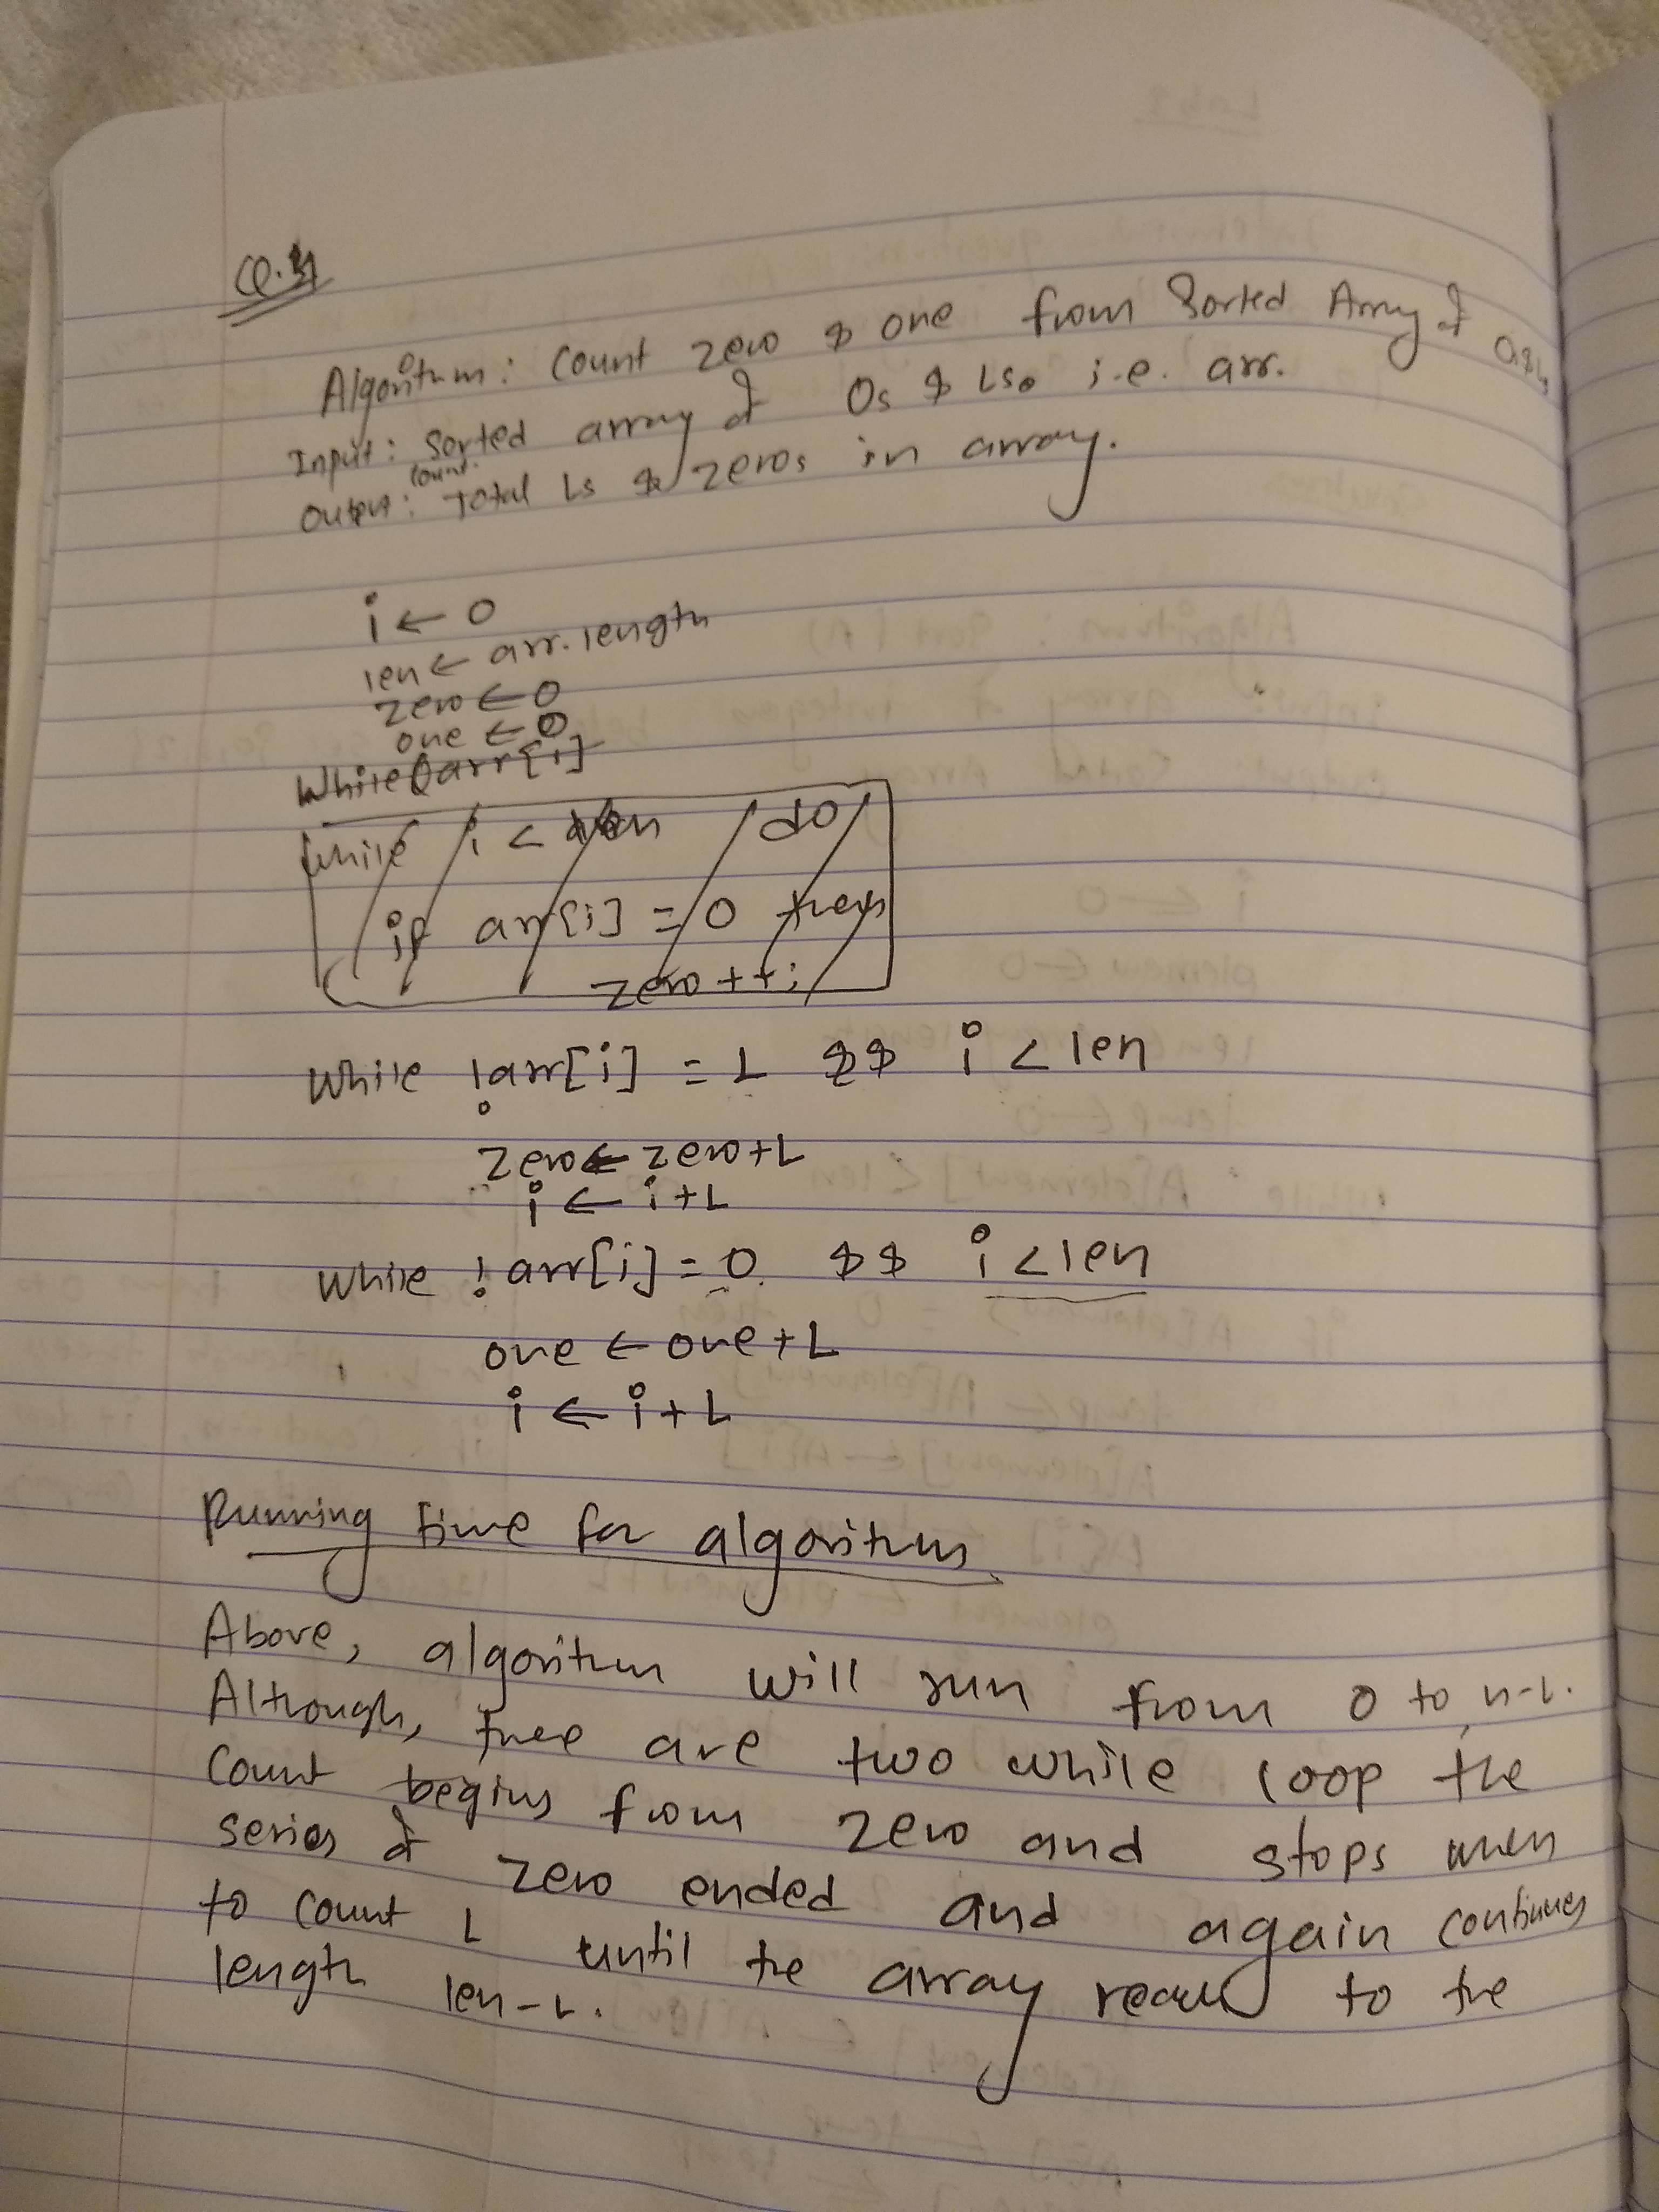 Q.4
Algorithm: Count zero & one from Sorted Array of 0s & 1s
Input: Sorted array of 0s & 1s. i.e. arr.
count
Output: Total 1s & zeros in array.
i ← 0
len ← arr.length
zero ← 0
one ← 0
While(arr[i]
while i < len do
if arr[i] = 0 then
zero++;
While !arr[i] = 1 && i < len
zero ← zero+1
i ← i+1
While !arr[i] = 0 && i < len
one ← one+1
i ← i+1
Running time for algorithm
Above, algorithm will run from 0 to n-1.
Although, there are two while loop the
Count begins from zero and stops when
series of zero ended and again continues
to count 1 until the array reach to the
length len-1.